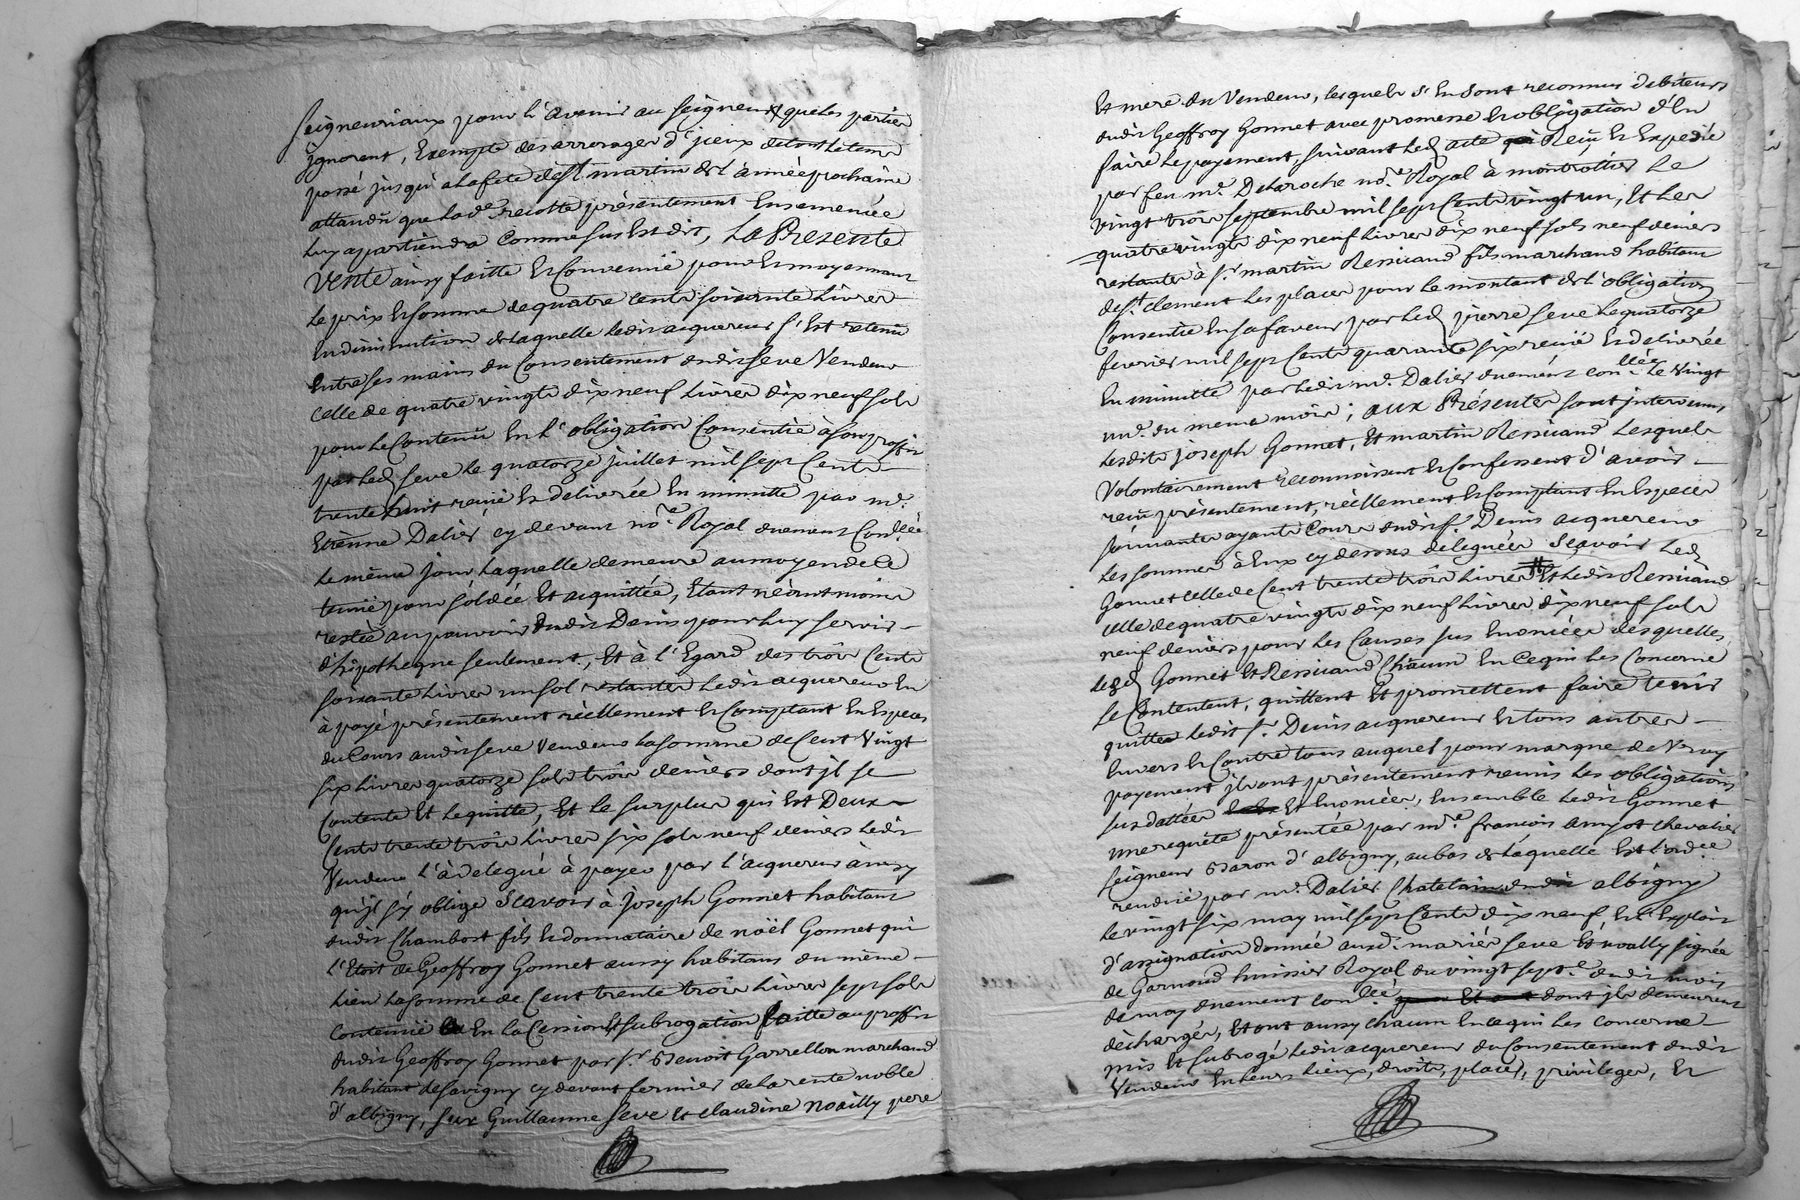 seigneuriaux pour l'avenir au seigneur que les parties
ignorent, Exempte des arrerages d'jceux de tout le tems
passé jusqu'a la fete de St. martin de l'année prochaine
attandu que lad.e recolte présentement Ensemencée
luy apartiendra comme sus Est dit, La Presente
Vente ainsy faitte Et Convenüe pour Et moyennant
le prix Et somme de quatre cents soixante livres
En diminution de laquelle ledit acquereur s'Est retenu
Entre ses mains du Consentement dudit Seve Vendeur
celle de quatre vingts dix neuf livres dix neuf sols
pour le Contenu En l'obligation Consentie à son proffit
par led. Seve le quatorze juillet mil sept Cents
trente huit reçue Et delivrée En minutte par me.
Etienne Dalier cy devant no.re Royal duement Con.llée
le même jour laquelle demeure au moyen de ce
tenüe pour soldée Et aquittée, Etant néantmoins
restée au pouvoir dudit Denis pour luy servir
d'hipotheque seulement, Et à l'Egard des trois Cents
soixante livres un sol restantes ledit acquereur En
à payé présentement réellement Et Comptant En Especes
du Cours audit Seve Vendeur la somme de Cent Vingt
six livres quatorze sols trois deniers dont jl se
Contente Et le quitte, Et le surplus qui Est Deux
Cents trente trois livres six sols neuf deniers ledit
Vendeur l'à delegué à payer par l'acquereur ainsy
qu'jl s'y oblige Scavoir à Joseph Gonnet habitant
dudit Chambost fils Et donnataire de noël Gonnet qui
l'Etoit de Geoffroy Gonnet aussy habitans du même
lieu la somme de Cent trente trois livres sept sols
contenüe En la Cession Et subrogation faitte au proffit
dudit Geoffroy Gonnet par Sr. Benoit Garrellon marchand
habitant de Savigny cy devant fermier de la rente noble
d'albigny, sur Guillaume Seve Et Claudine noailly pere
Et mere du Vendeur, lesquels s'En sont reconnus debiteurs
dudit Geoffroy Gonnet avec promesse Et obligation d'En
faire le payement, suivant led. acte Reçu Et Expedié
par feu me. Delaroche no.re Royal à montrottier le
vingt trois septembre mil sept Cents vingt un, Et les
quatre vingts dix neuf livres dix neuf sols neuf deniers
restantes à Sr. martin Ressicaud fils marchand habitant
de St. Clement les places pour le montant de l'obligation
Consentie En sa faveur par led. pierre Seve le quatorze
fevrier mil sept Cents quarante six reçue Et delivrée
En minutte par ledit me. Dalier duement con.llée le Vingt
un.e du meme mois; aux Présentes sont jntervenus
lesdits joseph Gonnet, Et martin Ressicaud lesquels
Volontairement reconnoissent Et Confessent d'avoir
reçu présentement, réellement Et Comptant En Especes
sonnantes ayants Cours dudit Sr. Denis acquereur
les sommes à Eux cy dessus deleguées Scavoir led.
Gonnet celle de Cent trente trois livres Et ledit Ressicaud
celle de quatre vingts dix neuf livres dix neuf sols
neuf deniers pour les Causes sus Enoncées desquelles
lesd. Gonnet Et Ressicaud Chacun En ce qui les Concerne
se Contentent, quittent Et promettent faire tenir
quitte ledit Sr. Denis acquereur Et tous autres
Envers Et Contre tous auquel pour marque de Vray
payement jls ont présentement remis les obligations
sus dattées Et Enoncées, Ensemble ledit Gonnet
une requête présentée par me. françois amyot chevalier
Seigneur Baron d'albigny, au bas de laquelle Est l'ord.ce
rendüe par me. Dalier Chatelain dudit albigny
le vingt six may mil sept Cents dix neuf Et l'Exploit
d'assignation donnée auxd. mariés Seve Et noally signée
de Garnaud huissier Royal du vingt sept.e dudit mois
de may duement con.llée dont jls demeurent
déchargés, Et ont aussy chacun En ce qui les concerne
mis Et subrogé ledit acquereur du Consentement dudit
Vendeur En leurs lieux, droits, places, privileges, Et